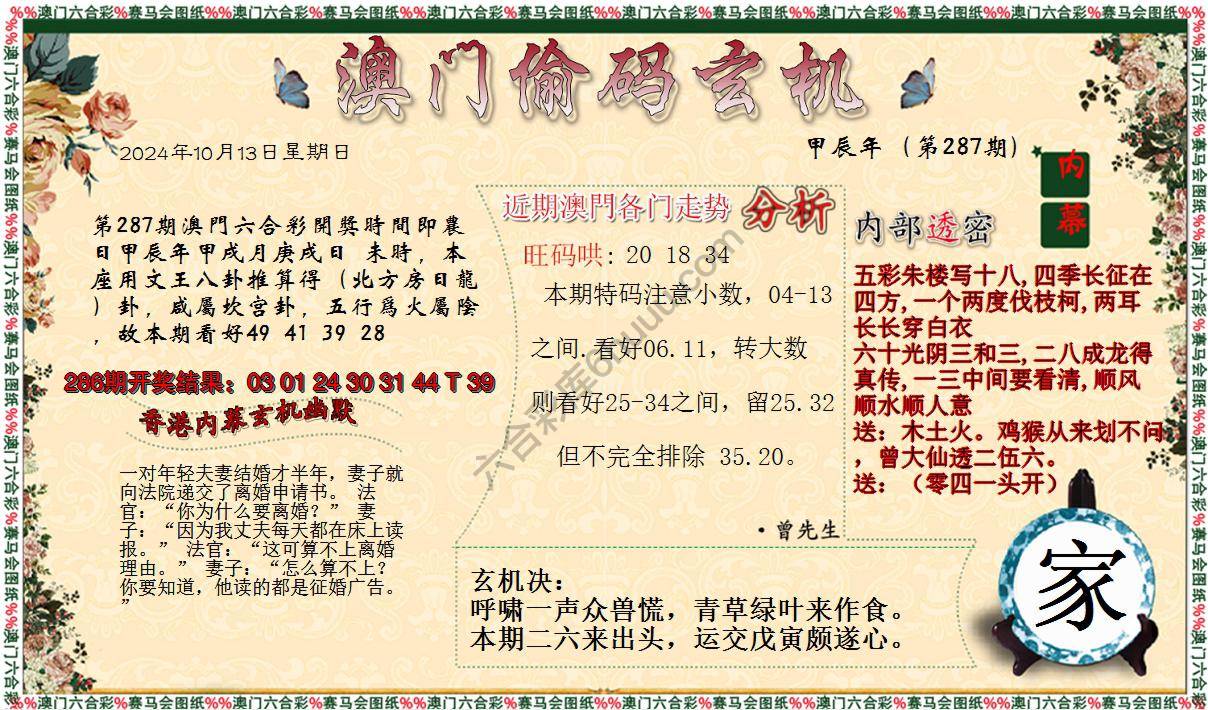 %%澳门六合彩%赛马会图纸%%澳门六合彩%赛马会图纸%%澳门六合彩%赛马会图纸%%澳门六合彩%赛马会图纸%%澳门六合彩%赛马会图纸%%澳门六合彩%赛马会图纸%%
澳门偷码玄机
2024年10月13日星期日
甲辰年（第287期）
内
幕
第287期澳門六合彩開獎時間即農
日甲辰年甲戌月庚戌日 未時，本
座用文王八卦推算得（北方房日龍
）卦，咸屬坎宫卦，五行爲火屬陰
，故本期看好49 41 39 28
286期开奖结果：03 01 24 30 31 44 T 39
香港内幕玄机幽默
一对年轻夫妻结婚才半年，妻子就
向法院递交了离婚申请书。 法
官：“你为什么要离婚？” 妻
子：“因为我丈夫每天都在床上读
报。” 法官：“这可算不上离婚
理由。” 妻子：“怎么算不上？
你要知道，他读的都是征婚广告。
”
近期澳門各门走势 分析
旺码哄: 20 18 34
本期特码注意小数，04-13
之间.看好06.11，转大数
则看好25-34之间，留25.32
但不完全排除 35.20。
·曾先生
内部透密
五彩朱楼写十八,四季长征在
四方,一个两度伐枝柯,两耳
长长穿白衣
六十光阴三和三,二八成龙得
真传,一三中间要看清,顺风
顺水顺人意
送：木土火。鸡猴从来划不问
，曾大仙透二伍六。
送：（零四一头开）
玄机决：
呼啸一声众兽慌，青草绿叶来作食。
本期二六来出头，运交戊寅颇遂心。
家
%%澳门六合彩%赛马会图纸%%澳门六合彩%赛马会图纸%%澳门六合彩%赛马会图纸%%澳门六合彩%赛马会图纸%%澳门六合彩%赛马会图纸%%澳门六合彩%赛马会图纸%%